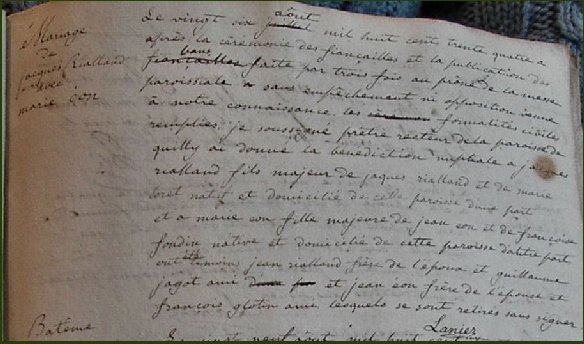 Mariage
de
jacques Rialland
avec
marie Eon
Le vingt six août mil huit cent trente quatre a
après la cérémonie des fiançailles et la publication des
bans faite par trois fois au prône de la messe
paroissiale & sans empêchement ni opposition venue
à notre connaissance, les formalités civiles
remplies, je soussigné prêtre recteur de la paroisse de
quilly ai donné la bénédiction nuptiale a jacques
rialland fils majeur de jaques rialland et de marie
loret natif et domicilié de cette paroisse dune part
et a marie eon fille majeure de jean eon et de françoise
fondin native et domiciliée de cette paroisse dautre part
ont été temoins jean rialland frère de l'epoux et guillaume
jagot ami et jean eon frère de l'épouse et
françois glotin ami lesquels se sont retirés sans signer
Lanier
Bateme
Le vingt neuf août mil huit